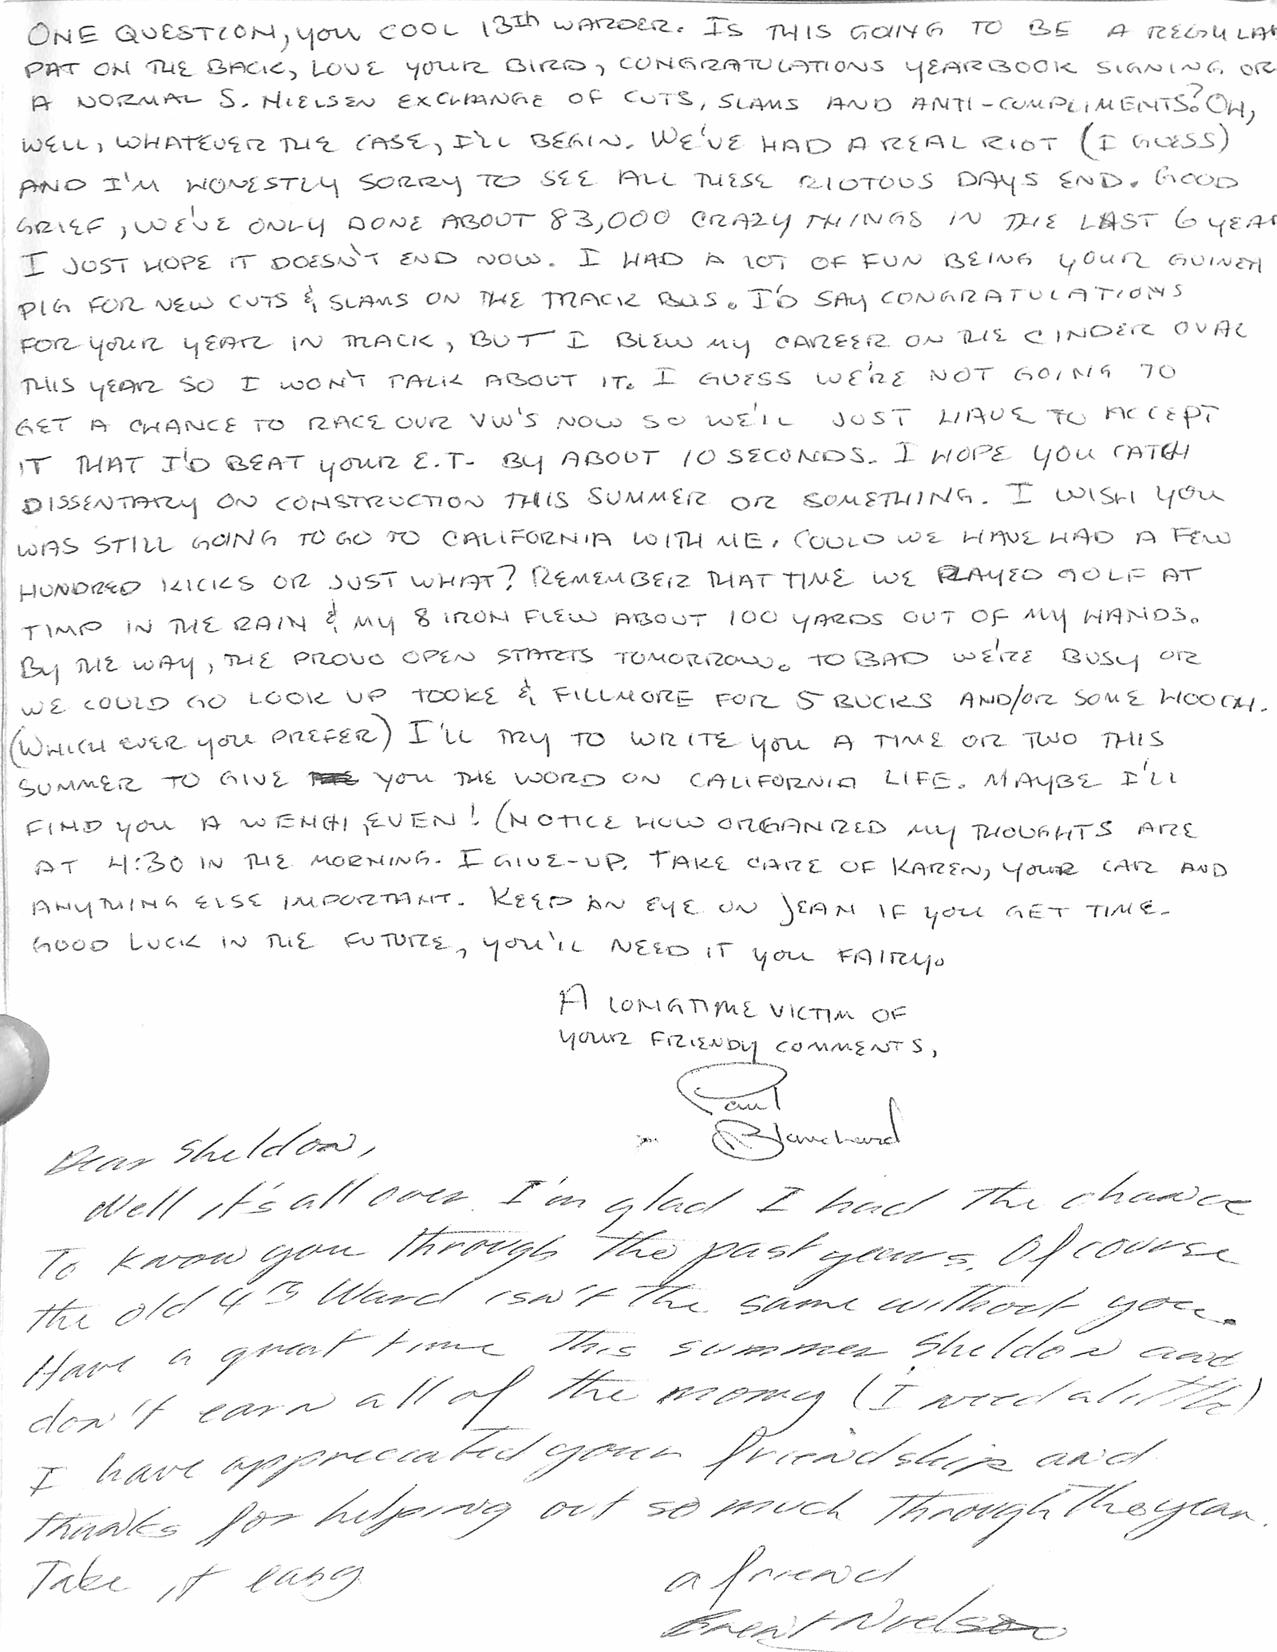 ONE QUESTION, YOU COOL 13th WARDER. IS THIS GOING TO BE A REGULAR
PAT ON THE BACK, LOVE YOUR BIRD, CONGRATULATIONS YEARBOOK SIGNING OR
A NORMAL S. NIELSEN EXCHANGE OF CUTS, SLAMS AND ANTI-COMPLIMENTS? OH,
WELL, WHATEVER THE CASE, I'LL BEGIN. WE'VE HAD A REAL RIOT (I GUESS)
AND I'M HONESTLY SORRY TO SEE ALL THESE RIOTOUS DAYS END. GOOD
GRIEF, WE'VE ONLY DONE ABOUT 83,000 CRAZY THINGS IN THE LAST 6 YEAR
I JUST HOPE IT DOESN'T END NOW. I HAD A LOT OF FUN BEING YOUR GUINEA
PIG FOR NEW CUTS & SLAMS ON THE TRACK BUS. I'D SAY CONGRATULATIONS
FOR YOUR YEAR IN TRACK, BUT I BLEW MY CAREER ON THE CINDER OVAL
THIS YEAR SO I WON'T TALK ABOUT IT. I GUESS WE'RE NOT GOING TO
GET A CHANCE TO RACE OUR VW'S NOW SO WE'LL JUST HAVE TO ACCEPT
IT THAT I'D BEAT YOUR E.T. BY ABOUT 10 SECONDS. I HOPE YOU CATCH
DISSENTARY ON CONSTRUCTION THIS SUMMER OR SOMETHING. I WISH YOU
WAS STILL GOING TO GO TO CALIFORNIA WITH ME. COULD WE HAVE HAD A FEW
HUNDRED KICKS OR JUST WHAT? REMEMBER THAT TIME WE PLAYED GOLF AT
TIMP IN THE RAIN & MY 8 IRON FLEW ABOUT 100 YARDS OUT OF MY HANDS.
BY THE WAY, THE PROVO OPEN STARTS TOMORROW. TO BAD WE'RE BUSY OR
WE COULD GO LOOK UP TOOKE & FILLMORE FOR 5 BUCKS AND/OR SOME HOOCH.
(WHICH EVER YOU PREFER) I'LL TRY TO WRITE YOU A TIME OR TWO THIS
SUMMER TO GIVE YOU THE WORD ON CALIFORNIA LIFE. MAYBE I'LL
FIND YOU A WENCH, EVEN! (NOTICE HOW ORGANIZED MY THOUGHTS ARE
AT 4:30 IN THE MORNING. I GIVE-UP. TAKE CARE OF KAREN, YOUR CAR AND
ANYTHING ELSE IMPORTANT. KEEP AN EYE ON JEAN IF YOU GET TIME.
GOOD LUCK IN THE FUTURE, YOU'LL NEED IT YOU FAIRY.
A LONGTIME VICTIM OF
YOUR FRIENDLY COMMENTS,
Paul
Blanchard
Dear Sheldon,
Well it's all over. I'm glad I had the chance
To know you through the past years. Of course
the old 4th Ward isn't the same without you.
Have a great time this summer Sheldon and
don't earn all of the money (I need a little)
I have appreciated your friendship and
thanks for helping out so much through the year.
Take it easy
a friend
Brent Nielson